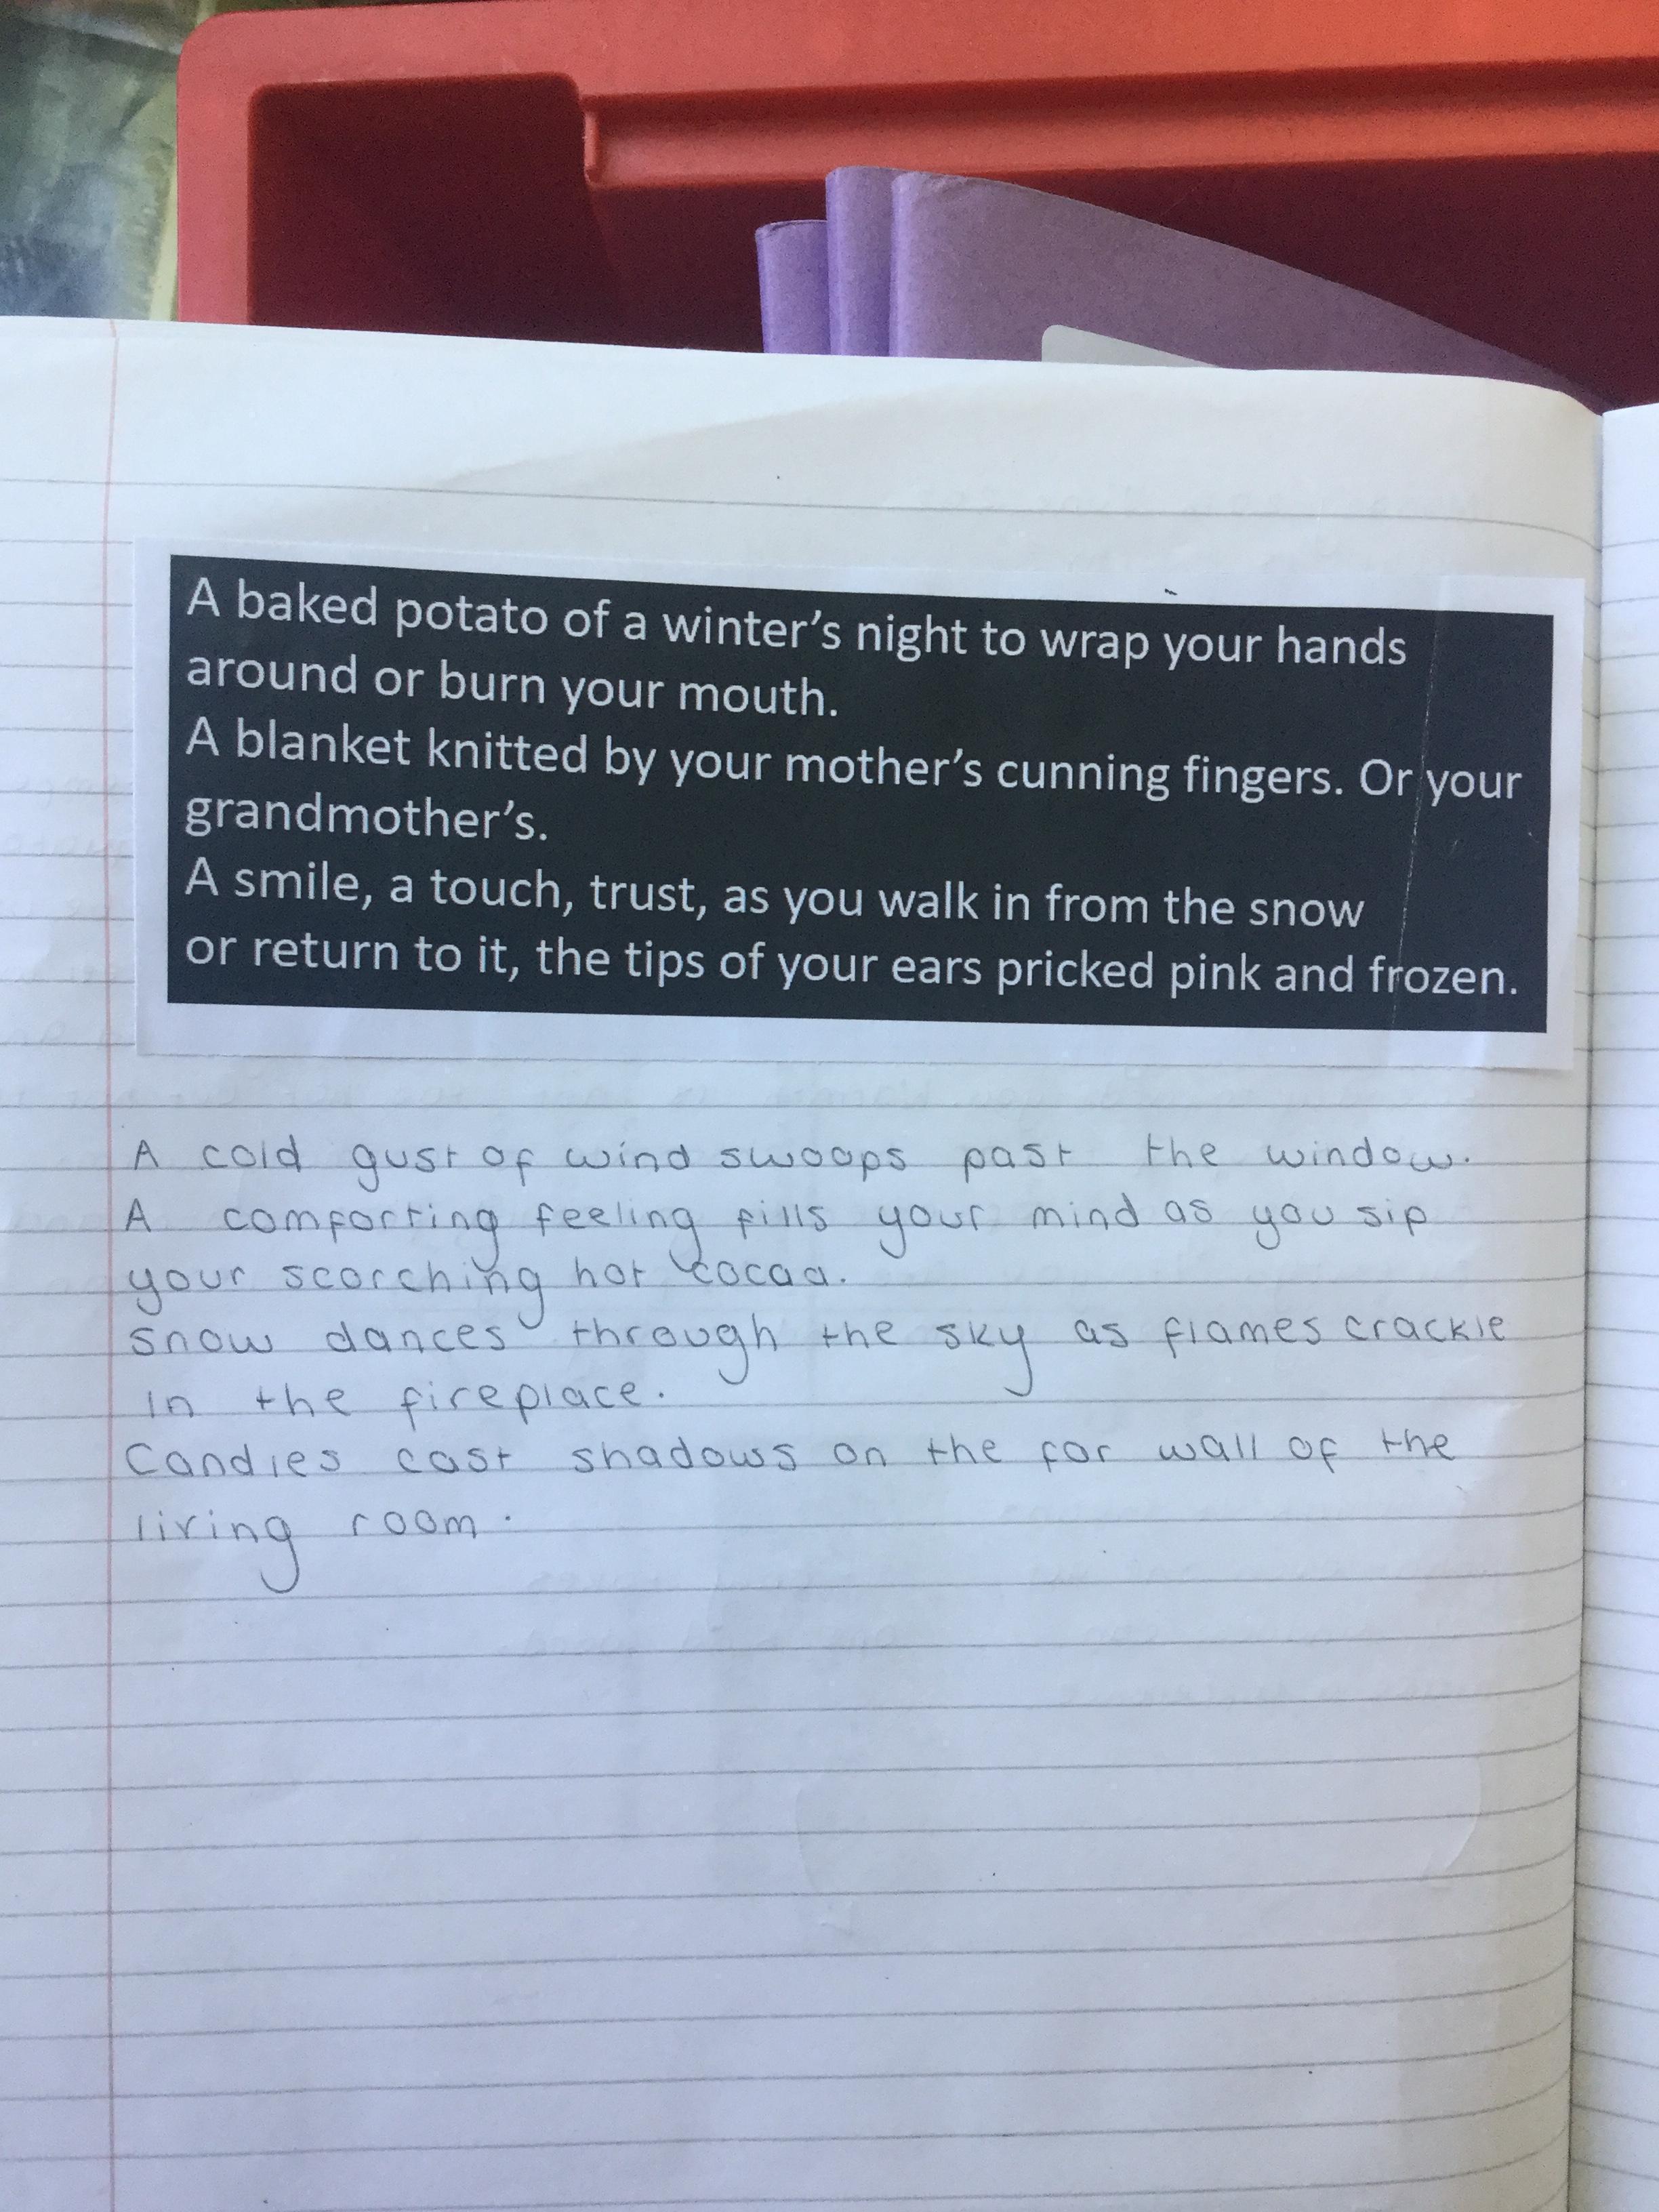 A baked potato of a winter's night to wrap your hands
around or burn your mouth.
A blanket knitted by your mother's cunning fingers. Or your
grandmother's.
A smile, a touch, trust, as you walk in from the snow
or return to it, the tips of your ears pricked pink and frozen.
A cold gust of wind swoops past the window.
A comforting feeling fills your mind as you sip
your scorching hot cocoa.
snow dances through the sky as flames crackle
in the fireplace.
Candles cast shadows on the far wall of the
living room.